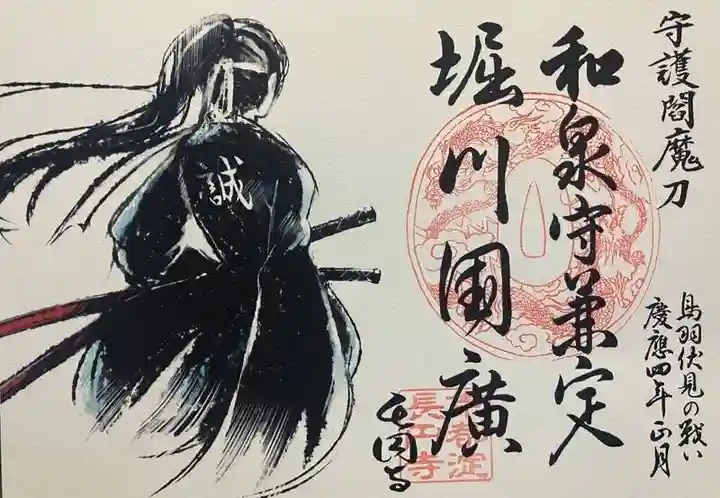 守護閻魔刀
和泉守兼定
堀川国廣
鳥羽伏見の戦い
慶應四年正月
長円寺
京都淀
長円寺
誠